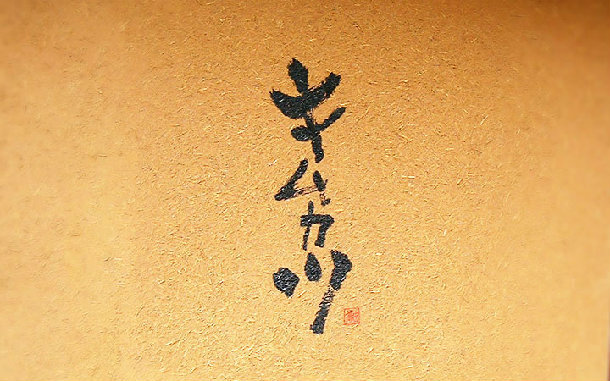 キムカツ